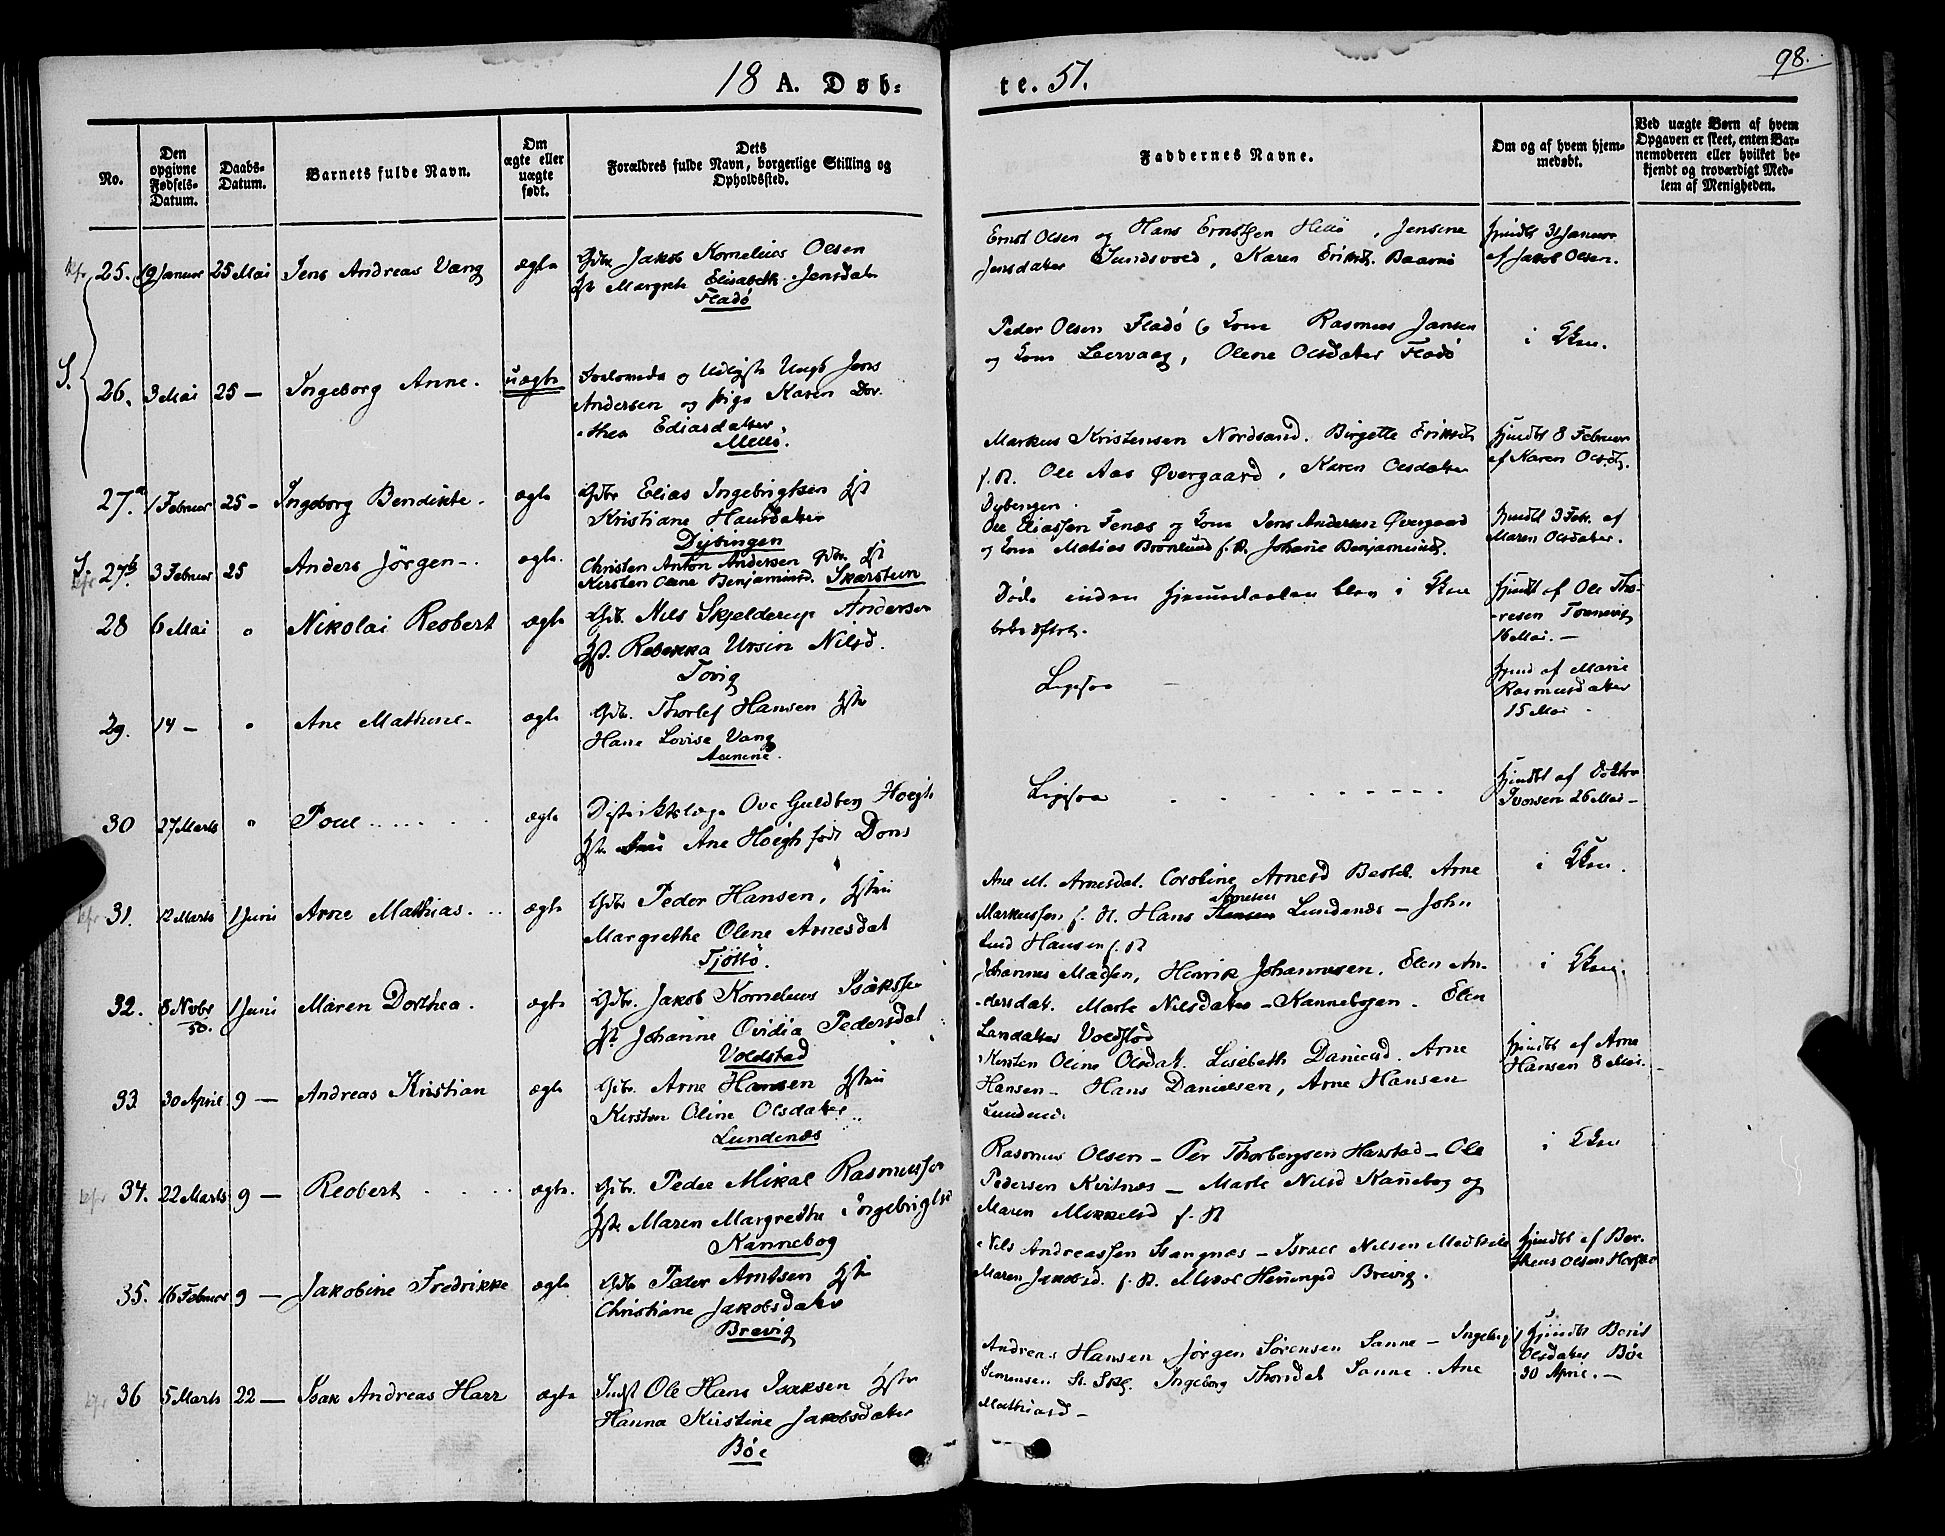 98.
18 A. Døb=
te. 51.
No.
Den opgivne Fødsels-Datum.
Daabs-Datum.
Barnets fulde Navn.
Om ægte eller uægte født.
Dets Forældres fulde Navn, borgerlige Stilling og Opholdssted.
Faddernes Navne.
Om og af hvem hjemmedøbt.
Ved uægte Børn af hvem Opgaven er skeet, enten Barnemoderen eller hvilket bekjendt og troværdigt Medlem af Menigheden.
25. 19 Januar 25 Mai Jens Andreas Vang ægte
Gdbr Jakob Kornelius Olsen
Margrete Elisabeth Jensdat
Fladø
Ernst Olsen og Hans Ernstsen , Jensine
Jensdatter Sundsvold, Karen Eriksd.
hjmdbt 31 Januar
af Jakob Olsen.
26. 3 Mai 25 — Ingeborg Anne. uægte
og Ungk Jens
Andersen og pige Karen Dor-
thea Ediasdatter,
Melø.
Peder Olsen Fladø Rasmus Jansen
og Leervaag, Olene Olsdatter Fladø
i Kken.
27a 1 Februar 25 - Ingeborg Bendikte. ægte
Gdbr Elias Ingebrigtsen
Kristiane Hansdatter
Dybingen
Markus Kristensen Nordsand. Birgette Eriksd
f. St. Ole Aas Øvergaard, Karen Olsdatter
Dybingen.
hjmdbt 8 Februar
af Karen Olsd.
27b 3 Februar 25 Anders Jörgen -. ægte.
Christen Anton Andersen Gdbr.
Kirsten Oline Benjaminsd. Skarstein
Ole Eliassen Fenæs og Jens Andersen Øvergaard
og Matias Brønlund f. St. Johane Benjaminsd.
hjmdbt 3 Febr. af
Maren Olsdatter.
28 6 Mai " Nikolai Reobert ægte
Gdb. Nils Skjelderup Andersen
Rebekka Ursin Nilsd.
Tovig
Døde inden hjemmedaaben blev i Kken
bekræftet.
hjmdbt af Ole Tho-
resen
16 Mai. —
29. 14 — " Ane Mathine - ægte
Gdb. Thorlef Hansen
Hane Lovise Vang
Aunne.
Ligesaa —
hjmd af Marie
Rasmusdatter
15 Mai
30 27 Marts " Poul ægte
Distriktslæge Ove Guldberg Hoegh
Ane Høegh født Dons
Ligesaa
hjmdbt af Doktor
Iversen 26 Mai —
31. 12 Marts 1 Juni Arne Mathias. ægte
Gdbr Peder Hansen,
Margrethe Olene Arnesdat
Tjøttø.
Ane M. Arnesdat. Caroline Arnesd Arne
Markussen f. St. Hans Arnesen Lundenæs — John
Lind Hansen f. St
i Kken.
32. 8 Novbr 50. 1 Juni Maren Dorthea. ægte
Gdbr. Jakob Kornelius Isaksse
Johanne Ovidia Pedersdat
Voldstad
Johannes Madsen, Henrik Johannesen. Elen An-
dersdat. Marte Nilsdatter — Kannebogen. Elen
Larsdatter Voldstad
i Kken.
33. 30 April 9 — Andreas Kristian ægte
Gdbr. Arne Hansen
Kirsten Oline Olsdatter
Lundenæs
Kirsten Oline Olsdat. Lisebeth Danielsd. Arne
Hansen — Hans Danielsen, Arne Hansen
Lundenæs
hjmdbt af Arne
Hansen 8 Mai.
34. 22 Marts 9 — Reobert ægte.
Gdbr. Peder Mikal Rasmussen
Maren Margrethe Ingebrigtsd
Kannebog
Rasmus Olsen — Per Thorbergsen Harstad — Ole
Pedersen Kvitnæs — Marte Nilsd Kannebog og
Maren Mikkelsd f. St
i Kken
35. 16 Februar 9 — Jakobine Fredrikke ægte
Gdbr Peder Arntsen
Christiane Jakobsdatter
Brevig
Nils Andreassen Stangnæs — Israel Nilsen
Maren Jakobsd. f. St. Brevig.
hjmdbt af Ber-
Olsen
36 5 Marts 22 — Isak Andreas Harr ægte
Indst Ole Hans Isaksen
Hanna Kirstine Jakobsdatter
Bøe
Andreas Hansen Jørgen Sørensen Sanne — Ingeborg
Simonsen Ingeborg Sanne. Ane
Mathiasd —
hjmdbt Berit
Olsdatter Bøe
30 April. —